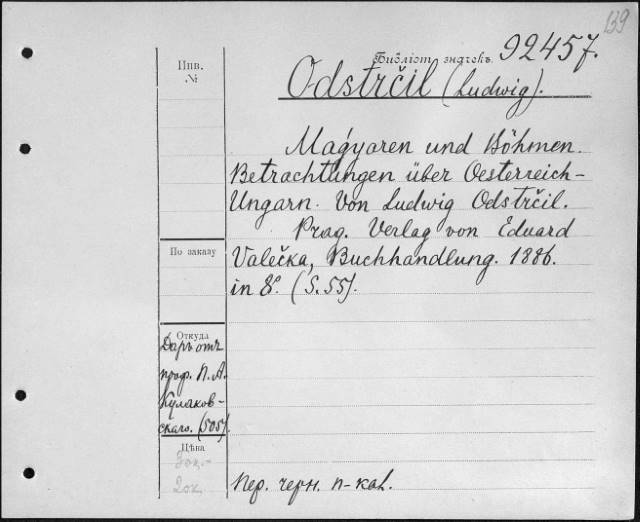 139
Библіот. значекъ. 92457.
Инв.
№
Odstrčil (Ludwig).
Magyaren und Böhmen.
Betrachtungen über Oesterreich-
Ungarn. Von Ludwig Odstrčil.
Prag. Verlag von Eduard
Valečka, Buchhandlung. 1886.
in 8º. (S. 55).
По заказу
Откуда
Даръ отъ
проф. П. А.
Куляков-
скаго. (505).
Цѣна
Пер. черн. п-кал.